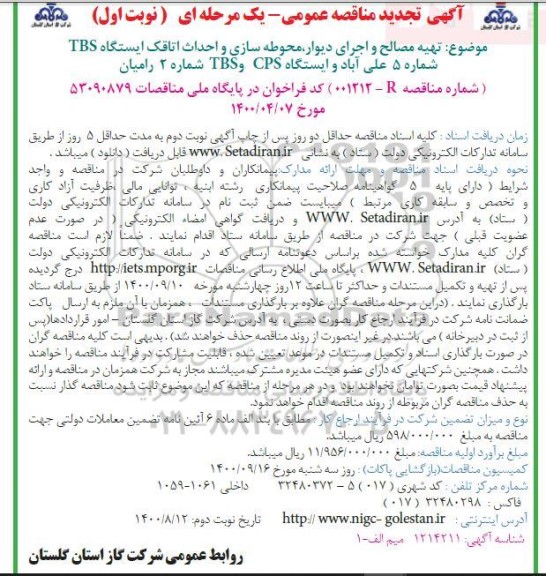 آگهی تجدید مناقصه عمومی – یک مرحله ای ( نوبت اول)
موضوع: تهیه مصالح و اجرای دیوار،محوطه سازی و احداث اتاقک ایستگاه TBS
شماره 5 علی آباد و ایستگاه CPS و TBS شماره 2 رامیان
( شماره مناقصه R – 001212 ) کد فراخوان در پایگاه ملی مناقصات 53090879
مورخ 1400/04/07
زمان دریافت اسناد : کلیه اسناد مناقصه حداقل دو روز پس از چاپ آگهی نوبت دوم به مدت حداقل 5 روز از طریق
سامانه تدارکات الکترونیکی دولت (ستاد ) به نشانی www.Setadiran.ir قابل دریافت ( دانلود ) میباشد .
نحوه دریافت اسناد مناقصه و مهلت ارائه مدارک:پیمانکاران و داوطلبان شرکت در مناقصه و واجد
شرایط ( دارای پایه 5 گواهینامه صلاحیت پیمانکاری رشته ابنیه ، توانایی مالی ،ظرفیت آزاد کاری
و تخصص و سابقه کاری مرتبط ) میبایست ضمن ثبت نام در سامانه تدارکات الکترونیکی دولت
( ستاد) به آدرس WWW. Setadiran.ir و دریافت گواهی امضاء الکترونیکی ( در صورت عدم
عضویت قبلی ) جهت شرکت در مناقصه از طریق سامانه ستاد اقدام نمایند . ضمناً لازم است مناقصه
گران کلیه مدارک خواسته شده براساس دعوتنامه ارسالی که در سامانه تدارکات الکترونیکی دولت
( ستاد) WWW. Setadiran.ir ، پایگاه ملی اطلاع رسانی مناقصات http://iets.mporg.ir درج گردیده
پس از تهیه و تکمیل مستندات و حداکثر تا ساعت 12روز چهارشنبه مورخه 1400/09/10 از طریق سامانه ستاد
بارگذاری نمایند . (دراین مرحله مناقصه گران علاوه بر بارگذاری مستندات ، همزمان با آن ملزم به ارسال پاکت
ضمانت نامه شرکت در فرآیند ارجاع کار بصورت دستی ، به آدرس شرکت گاز استان گلستان – امور قراردادها(پس
از ثبت در دبیرخانه ) می باشند در غیر اینصورت از روند مناقصه حذف خواهند شد) . بدیهی است کلیه مناقصه گران
در صورت بارگذاری اسناد و تکمیل مستندات در موعد تعیین شده ، قابلیت مشارکت در فرآیند مناقصه را خواهند
داشت . همچنین شرکتهایی که دارای عضو هیئت مدیره مشترک میباشند مجاز به شرکت همزمان در مناقصه و ارائه
پیشنهاد قیمت بصورت توامان نخواهند بود و در هر مرحله از مناقصه که این موضوع ثابت شود مناقصه گذار نسبت
به حذف مناقصه گران مربوطه از روند مناقصه اقدام خواهد نمود.
نوع و میزان تضمین شرکت در فرآیند ارجاع کار : مطابق با بند الف ماده 6 آئین نامه تضمین معاملات دولتی جهت
مناقصه به مبلغ 598/000/000 ریال میباشد.
مبلغ برآورد اولیه مناقصه: مبلغ 11/956/000/000 ریال میباشد.
کمیسیون مناقصات(بازگشایی پاکات) : روز سه شنبه مورخ 1400/09/16
شماره مرکز تلفن : کد شهری ( 017 ) 5 – 32480372 داخلی 1061-1059
فاکس : 32480298 ( 017 )
آدرس اینترنتی : http:// www.nigc- golestan.ir تاریخ نوبت دوم: 1400/8/12
شناسه آگهی: 1214211 میم الف-1
روابط عمومی شرکت گاز استان گلستان